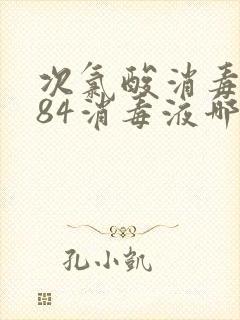 次氯酸消毒
84消毒液哪
孔小凯